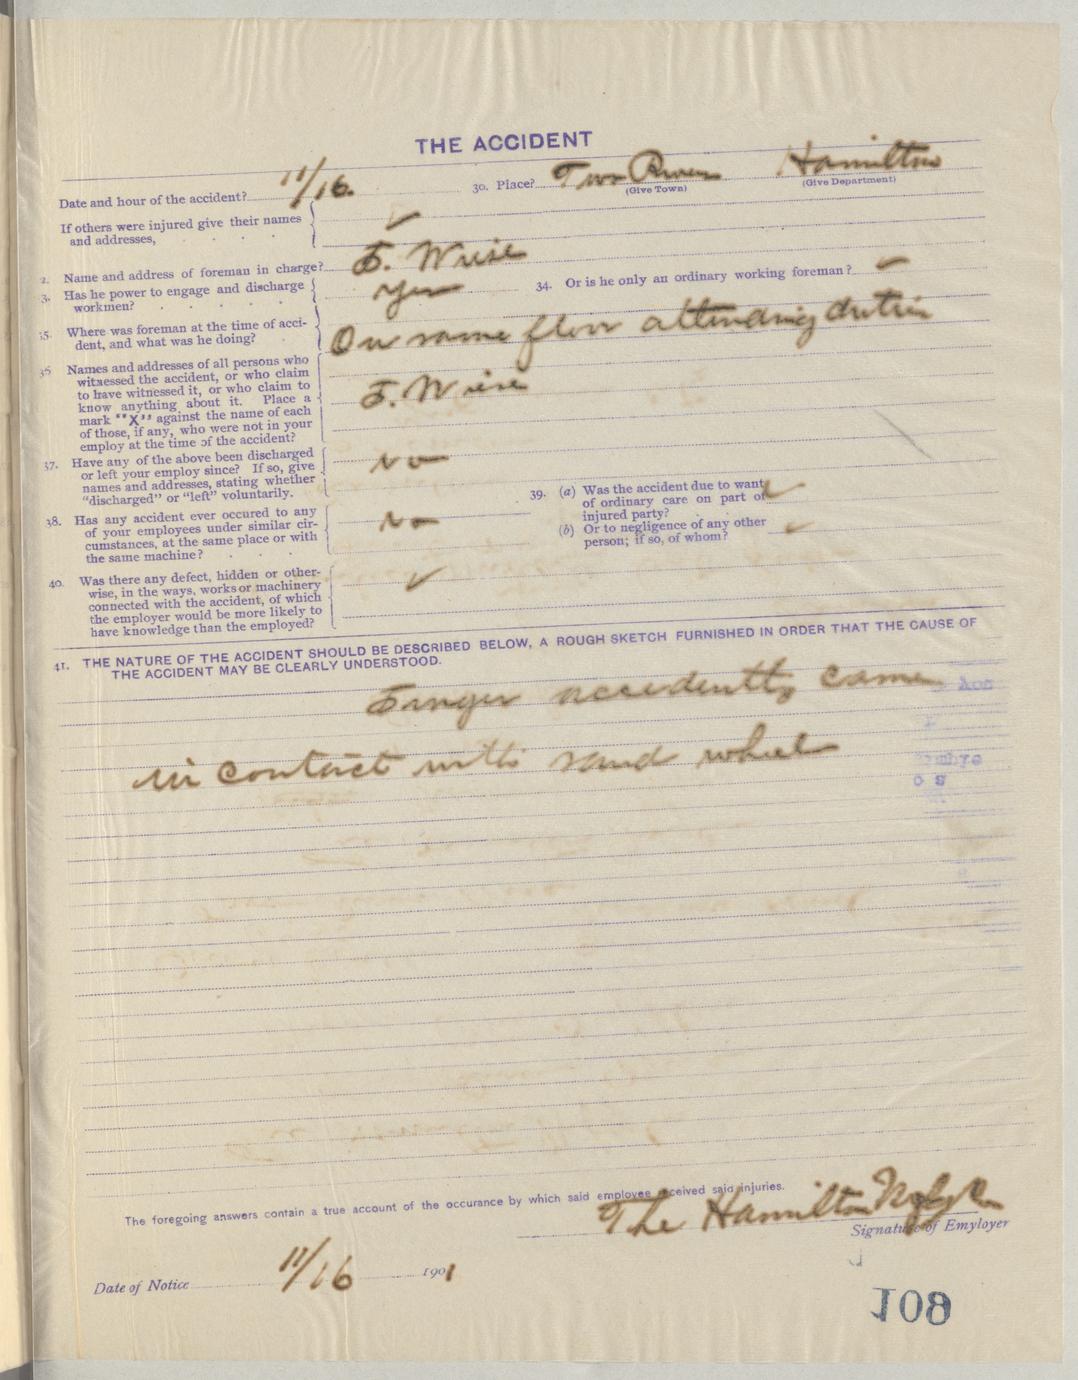 THE ACCIDENT
Date and hour of the accident? 11/16. 30. Place? Two Rivers Hamilton
(Give Town) (Give Department)
If others were injured give their names
and addresses, ✓
2. Name and address of foreman in charge? F. Wiese
3. Has he power to engage and discharge
workmen? Yes 34. Or is he only an ordinary working foreman? ✓
35. Where was foreman at the time of acci-
dent, and what was he doing? On same floor attending duties
36 Names and addresses of all persons who
witnessed the accident, or who claim
to have witnessed it, or who claim to
know anything about it. Place a
mark "X" against the name of each
of those, if any, who were not in your
employ at the time of the accident?
F. Wiese
37. Have any of the above been discharged
or left your employ since? If so, give
names and addresses, stating whether
"discharged" or "left" voluntarily.
no
38. Has any accident ever occured to any
of your employees under similar cir-
cumstances, at the same place or with
the same machine?
no
39. (a) Was the accident due to want
of ordinary care on part of
injured party? ✓
(b) Or to negligence of any other
person; if so, of whom? ✓
40. Was there any defect, hidden or other-
wise, in the ways, works or machinery
connected with the accident, of which
the employer would be more likely to
have knowledge than the employed?
✓
41. THE NATURE OF THE ACCIDENT SHOULD BE DESCRIBED BELOW, A ROUGH SKETCH FURNISHED IN ORDER THAT THE CAUSE OF
THE ACCIDENT MAY BE CLEARLY UNDERSTOOD.
Finger accidently came
in contact with sand wheel
The foregoing answers contain a true account of the occurance by which said employee received said injuries.
The Hamilton Mfg Co
Signature of Emyloyer
Date of Notice 11/16 1901
108